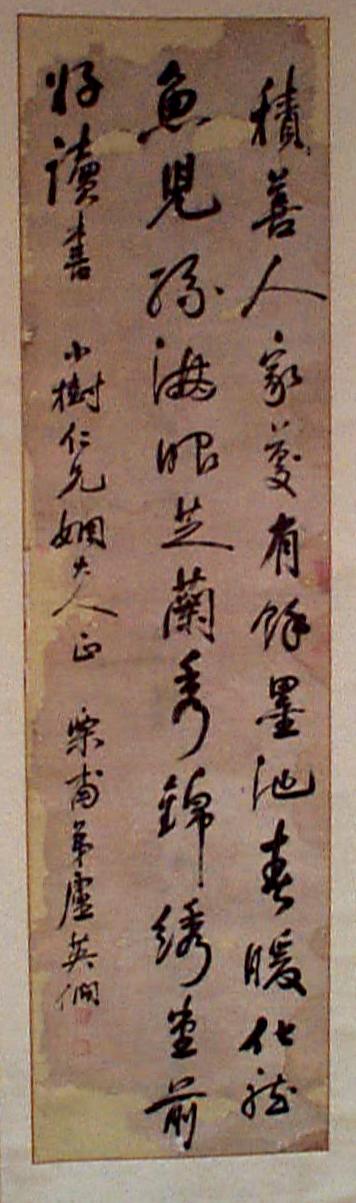 積善人家慶有餘墨池春暖化龍
魚兒孫滿眼芝蘭秀錦綉堂前
好讀書 小樹仁兄姻大人正 弟盧英倜